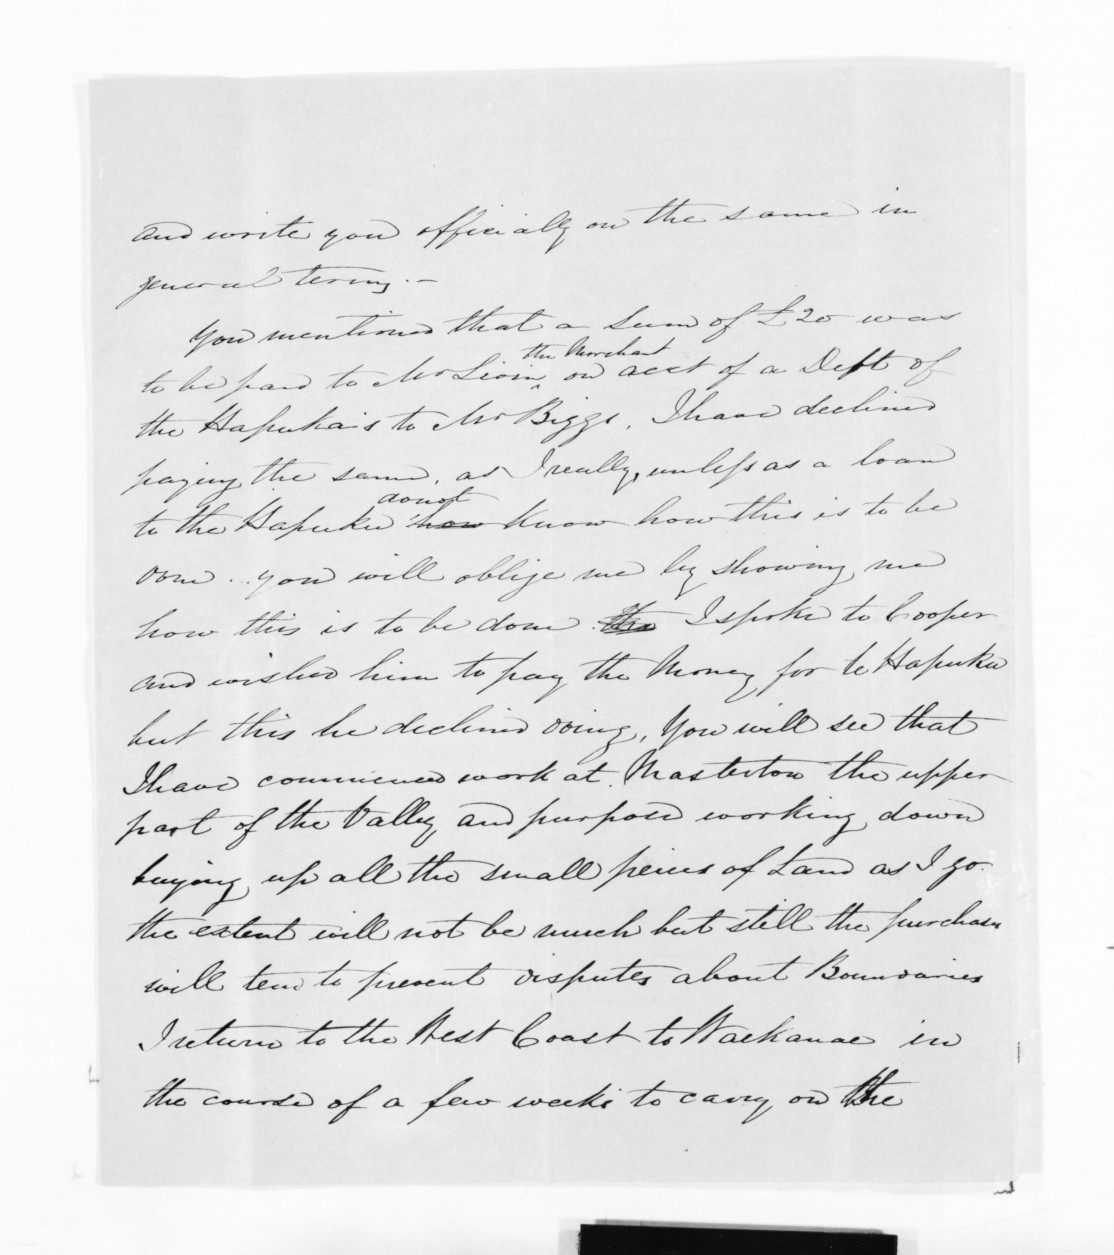 and write you officially on the same in
general terms. —
You mentioned that a Sum of £20 was
to be paid to Mr Levin ^the Merchant on acct of a Debt of
the Hapuka's to Mr Biggs, I have declined
paying the same, as I really, unless as a loan
to the Hapuku donot ~~how~~ know how this is to be
done .. you will oblige me by showing me
how this is to be done. ~~the~~ I spoke to Cooper
and wished him to pay the Money for te Hapuku
but this he declined doing, You will see that
I have commenced work at Masterton the upper
part of the Valley and purpose working down
buying up all the small pieces of Land as I go.
the extent will not be much but still the purchases
will tend to prevent disputes about Boundaries
I return to the West Coast to Waekanae in
the course of a few weeks to carry on the